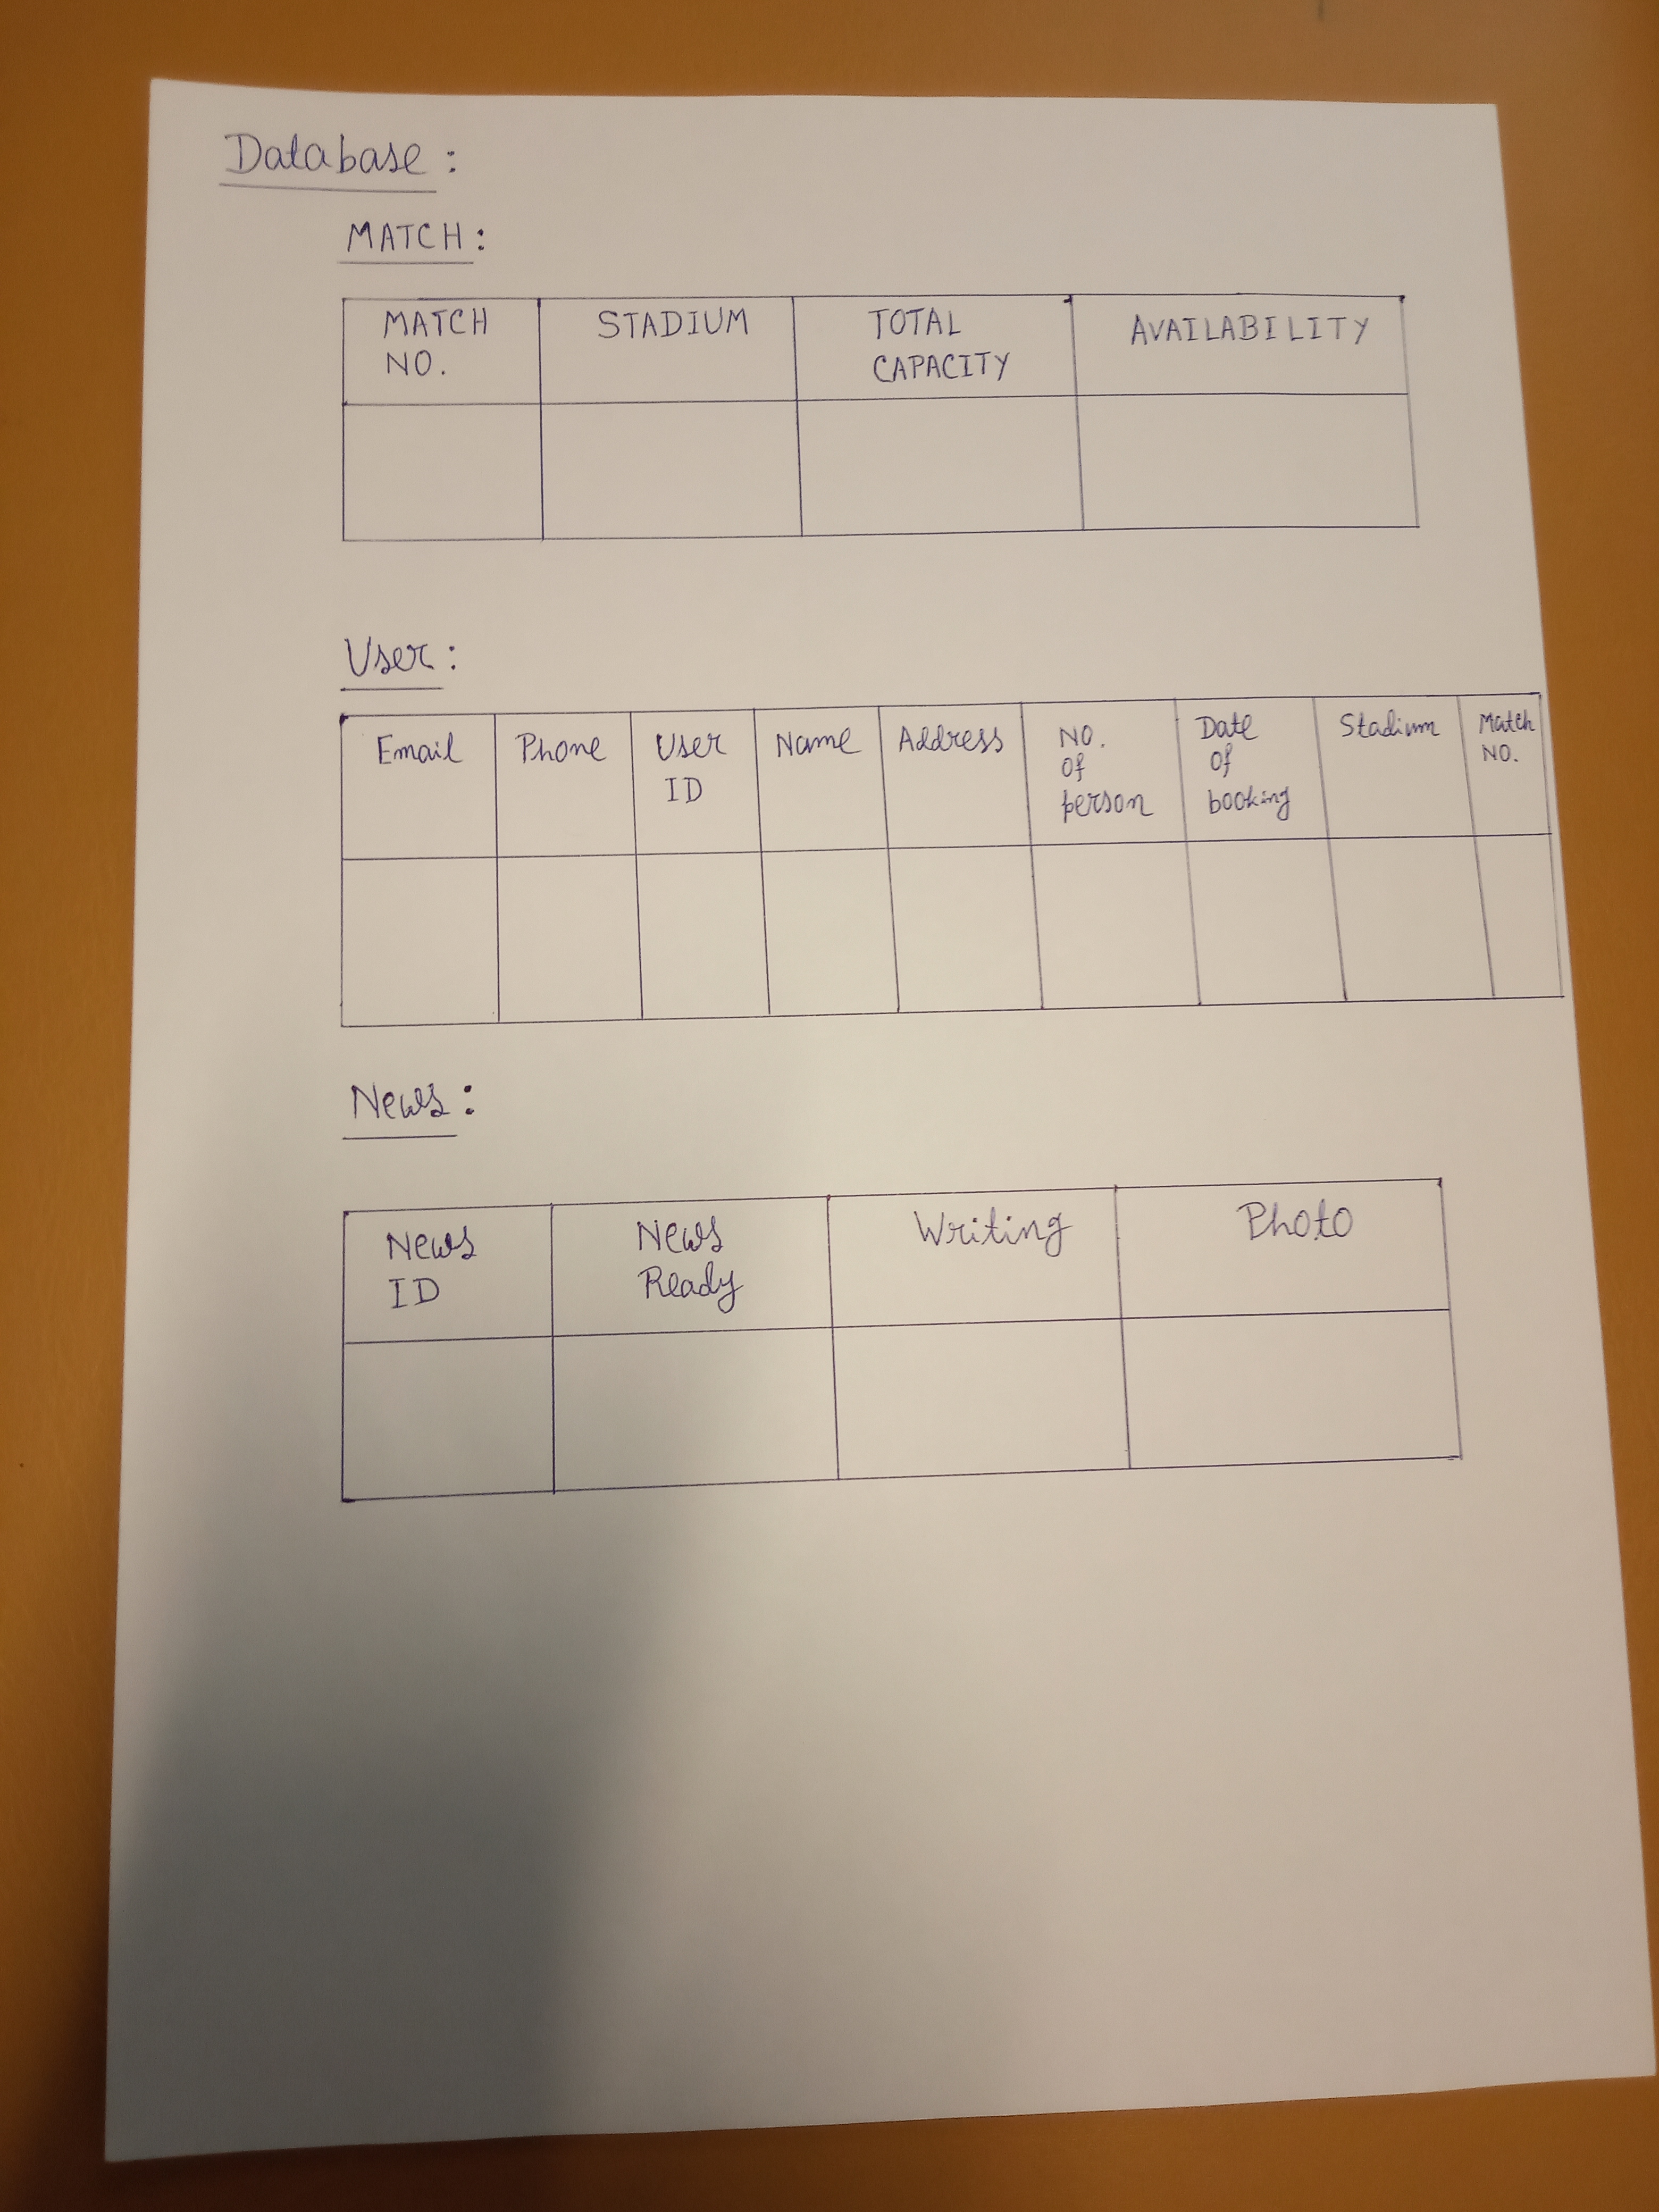 Database :
MATCH :
MATCH NO. STADIUM TOTAL CAPACITY AVAILABILITY
User :
Email Phone User ID Name Address NO. of person Date of booking Stadium Match NO.
News :
News ID News Ready Writing Photo